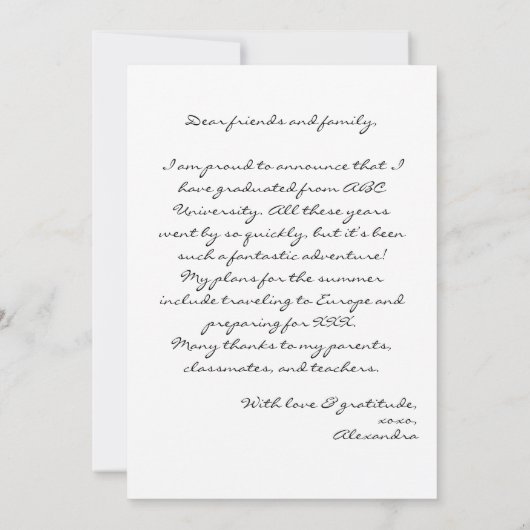 Dear friends and family,
I am proud to announce that I
have graduated from ABC
University. All these years
went by so quickly, but it's been
such a fantastic adventure!
My plans for the summer
include traveling to Europe and
preparing for XXX.
Many thanks to my parents,
classmates, and teachers.
With love & gratitude,
xoxo,
Alexandra